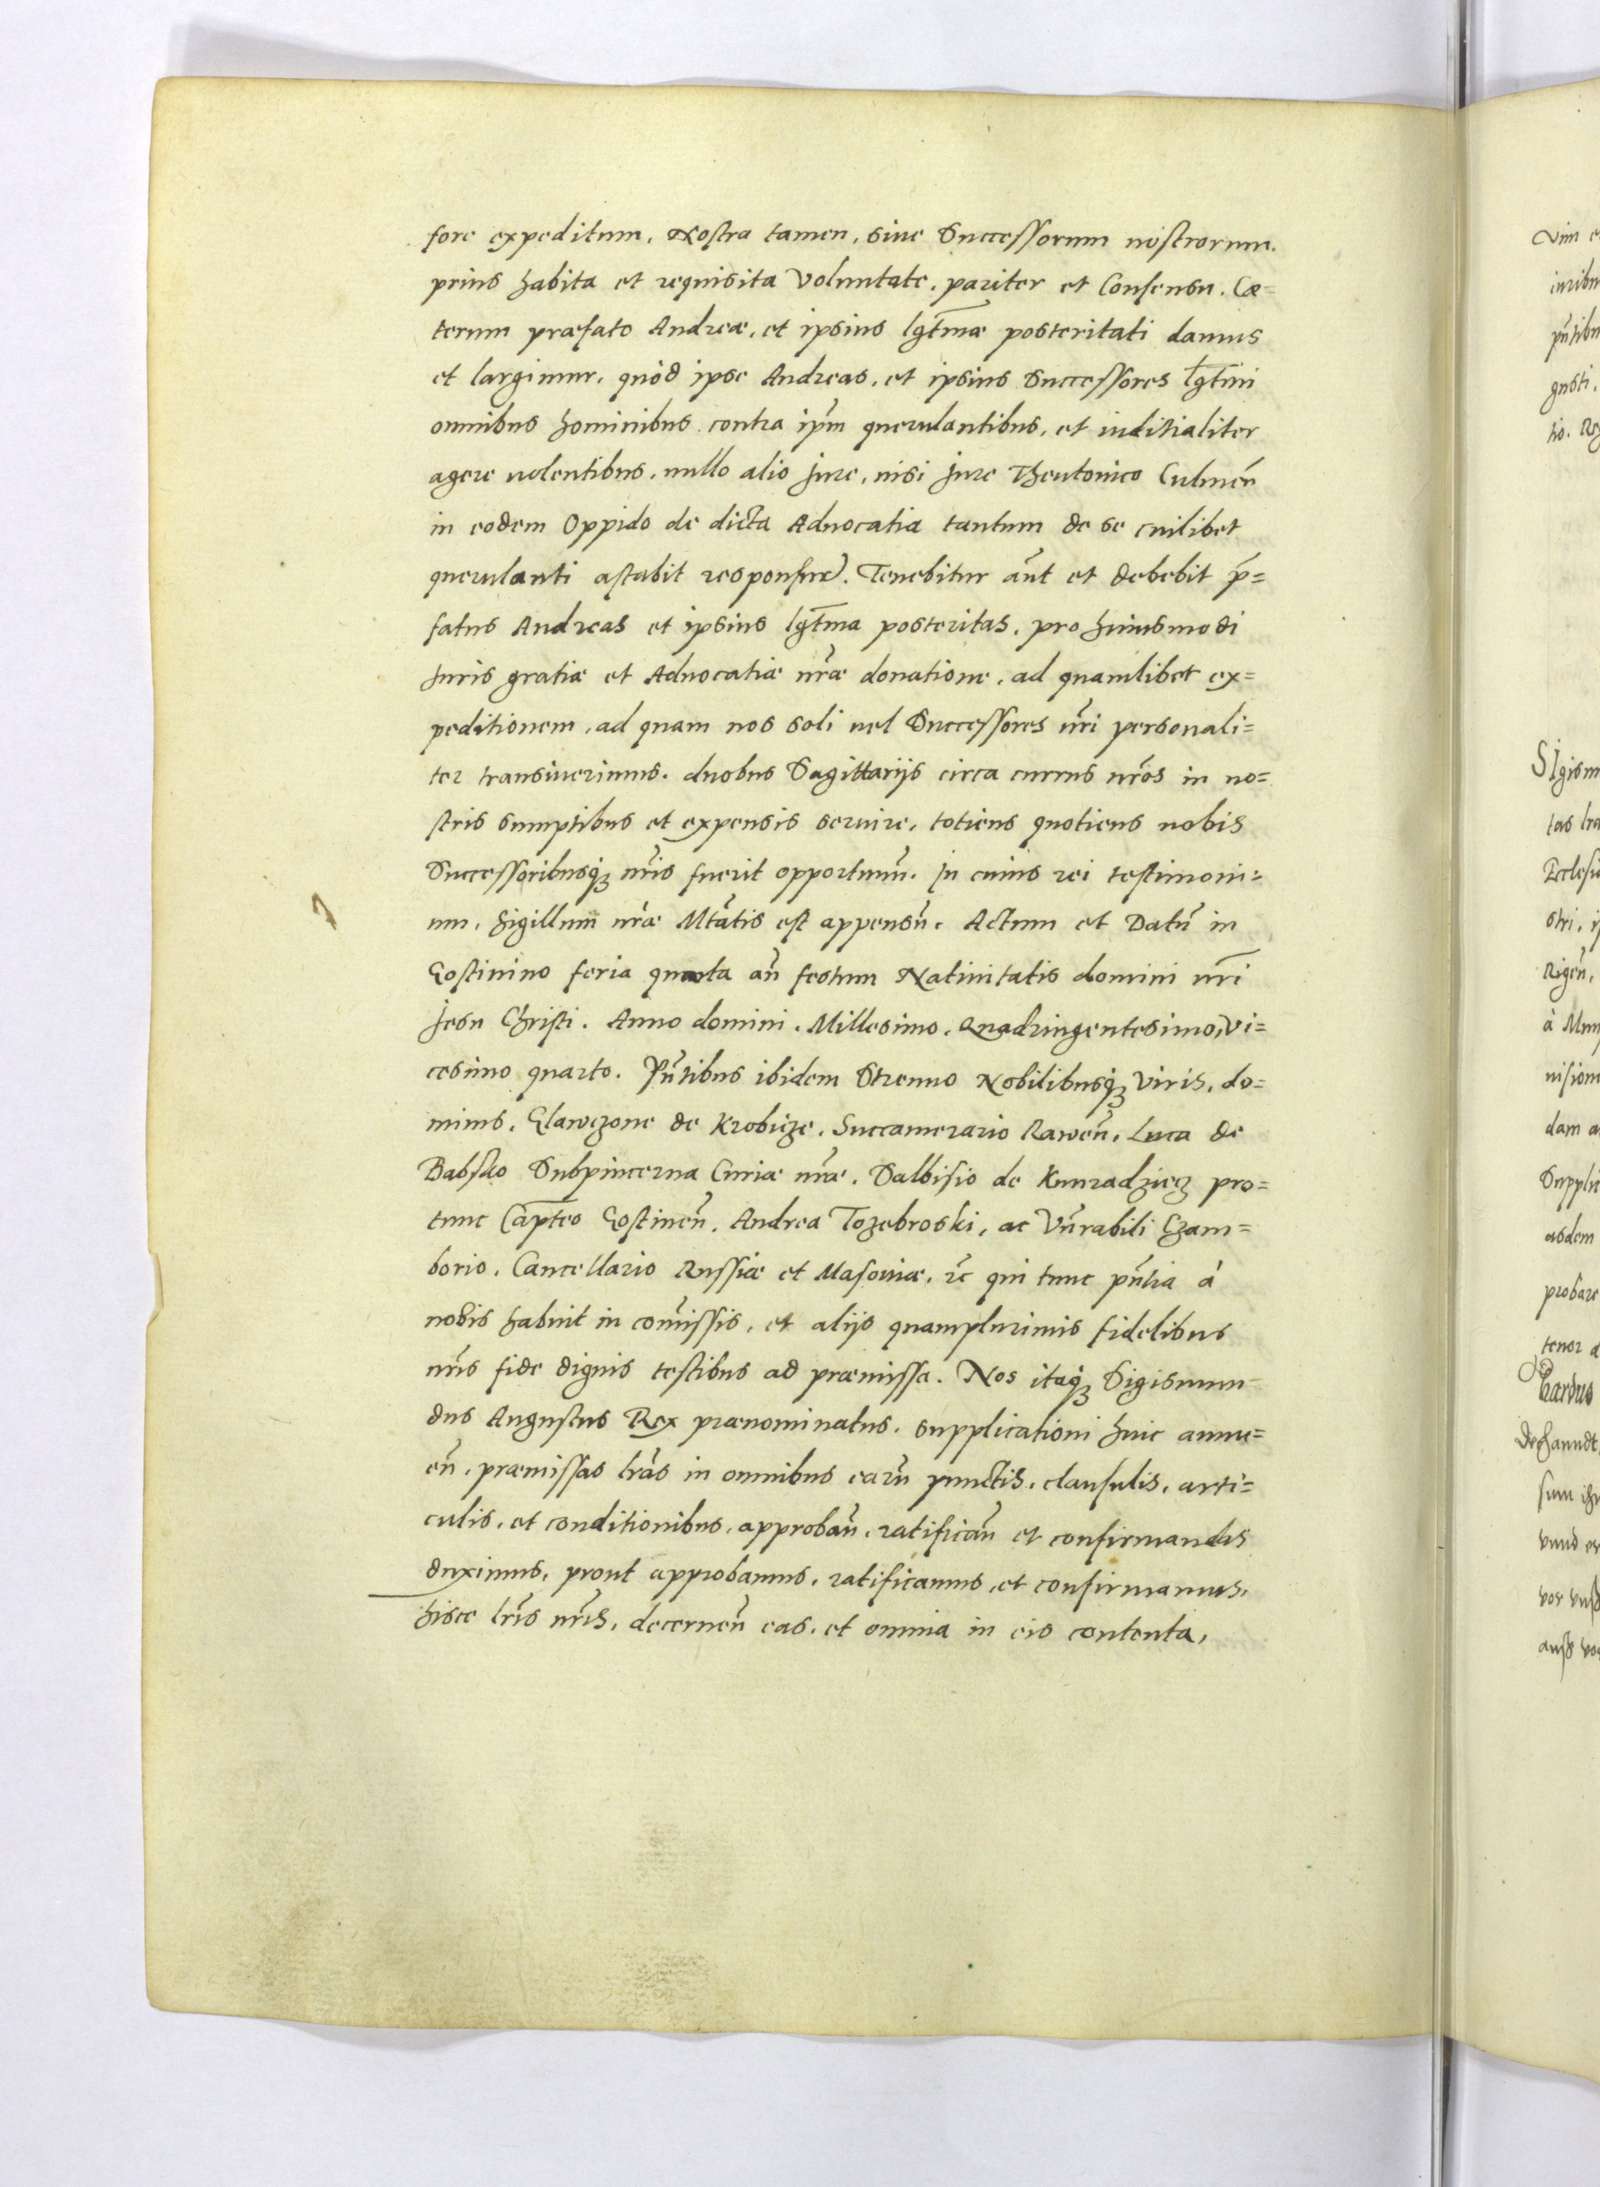 fore expeditum, Nostra tamen, siue Successorum nostrorum.
prius habita et requisita Voluntate, pariter et Consensu. Cæ=
terum præfato Andreæ, et ipsius lgt̄mæ posteritati damus
et largimur, quòd ipse Andreas, et ipsius Successores lgt̄mi
omnibus hominibus contra ip̄m querulantibus, et inditialiter
agere uolentibus, nullo alio Jure, nisi Jure Theutonico Culmeñ
in eodem Oppido de dicta Aduocatia tantum de se cuilibet
querulanti astabit responsur. Tenebitur aūt et debebit p̄=
fatus Andreas et ipsius lgt̄ma posteritas, pro huiusmodi
Juris gratiæ et Aduocatiæ nr̄æ donatione, ad quamlibet ex=
peditionem, ad quam nos soli uel Successores nr̄i personali=
ter transiuerimus, duobus Sagittarijs circa currus nr̄os in no=
stris sumptibus et expensis seruire, totiens quotiens nobis
Successoribusqꝫ nr̄is fuerit opportunū. In cuius rei testimoni=
um, sigillum nr̄æ Mtātis est appensū. Actum et Datū in
Gostinino feria quarta añ festum Natiuitatis domini nr̄i
Jesu Christi. Anno domini. Millesimo. Quadringentesimo, vi=
cesimo quarto. Pñtibus ibidem Strenuo Nobilibusqꝫ viris, do=
minis, Glawczone de Krobicze, Succamerario Raweñ, Luca de
Babsko Subpincerna Curiæ nr̄æ, Dalbisio de Kunradzicz pro=
tunc Capt̄eo Gostineñ, Andrea Tozebroski, ac Vn̄rabili Czam=
borio, Cancellario Russiæ et Masouiæ, ꝛc̄ qui tunc pñtia à
nobis habuit in com̄issis, et alijs quamplurimis fidelibus
nr̄is fide dignis testibus ad præmissa. Nos itaqꝫ Sigismun=
dus Augustus Rex prænominatus, supplicationi huic annu=
eñ, præmissas lr̄as in omnibus earū punctis, clausulis, arti=
culis, et conditionibus, approbañ, ratificañ et confirmandas
duximus, prout approbamus, ratificamus, et confirmamus,
hisce lr̄is nr̄is, decerneñ eas, et omnia in eis contenta,